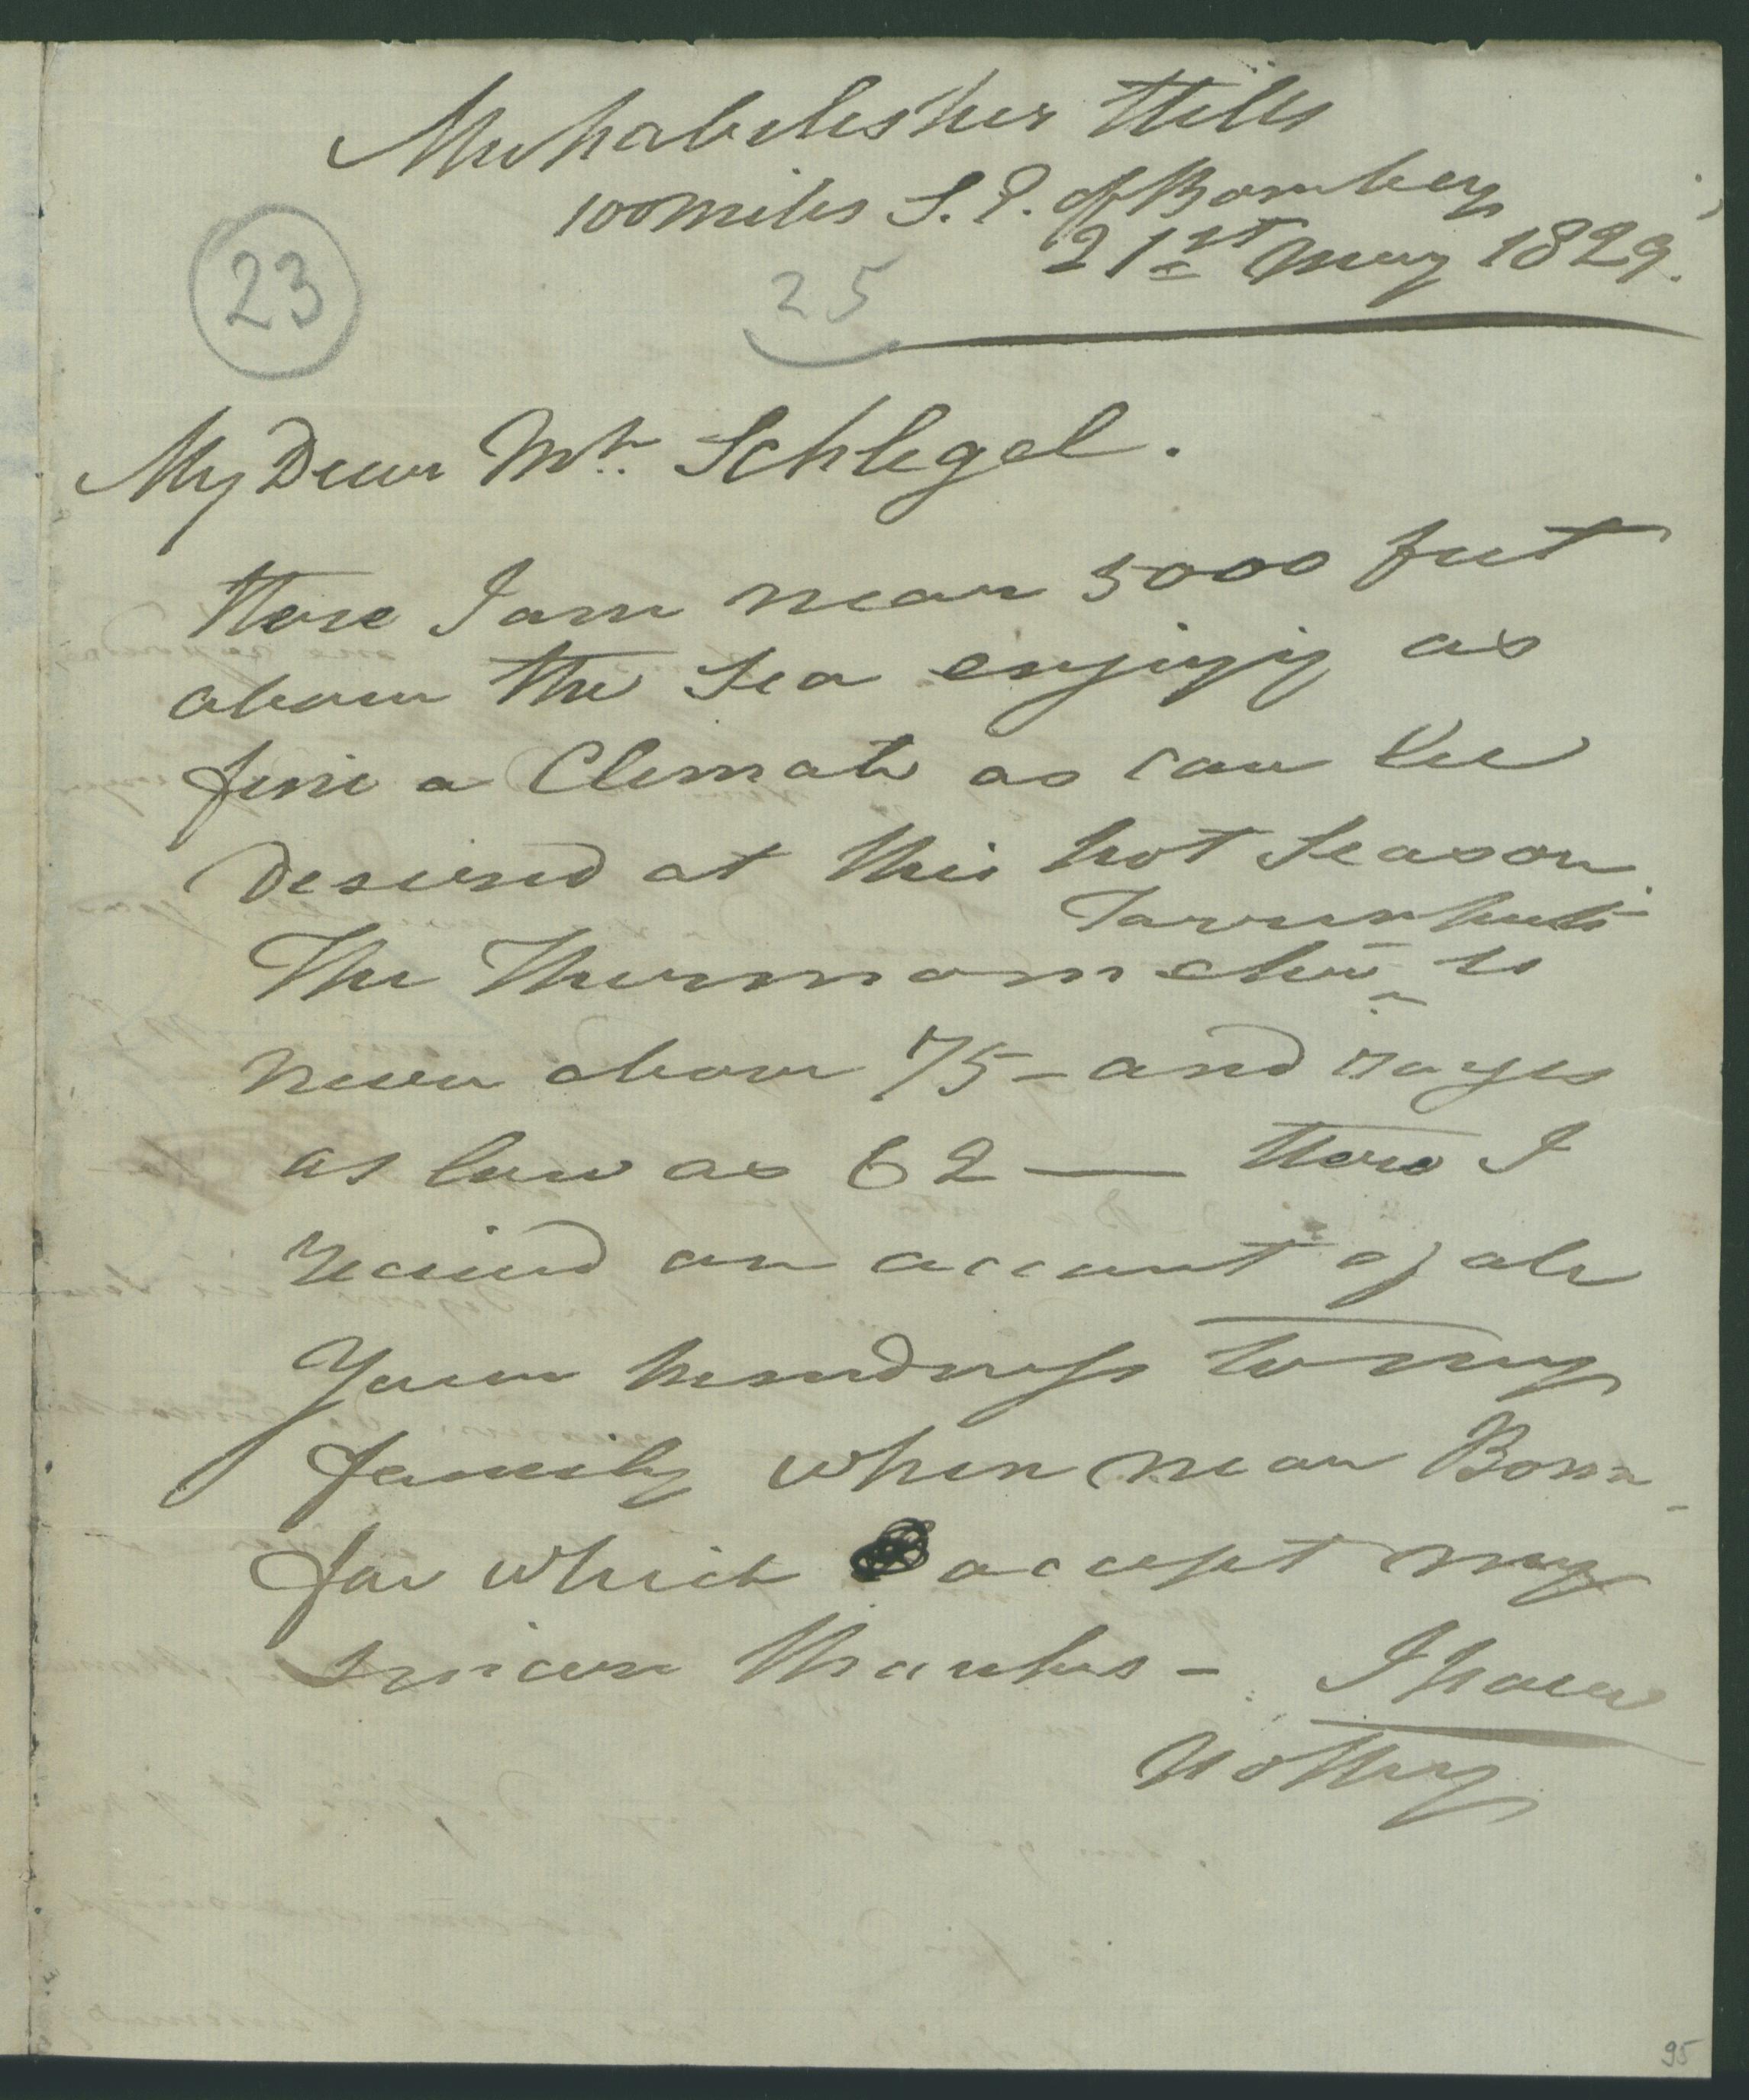 Muhabilesher Hills
100 miles S.E. of Bombay
21st May 1829.
23
25
My Dear Mr. Schlegel.
Here I am near 5000 feet
above the Sea enjoyig as
fine a Climate as can be
desired at this hot Season.
Farenheits
The Thermometer is
never above 75 - and ranges
as low as 62 — Here I
received an account of all
Your kindness to my
family when near Bonn -
for which accept my
sincere thanks - I have
nothing
95